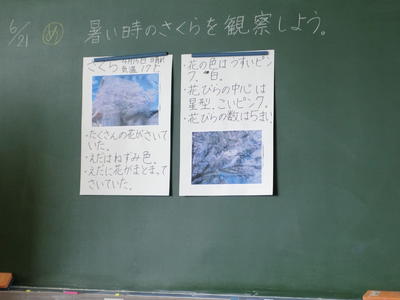 6/21 め 暑い時のさくらを観察しよう。
さくら 4月15日 晴れ
気温 17℃
・たくさんの花がさいていた。
・えだはねずみ色。
・えだに花がまとまってさいていた。
・花の色はうすいピンク。白。
・花びらの中心は星型。こいピンク。
・花びらの数は5まい